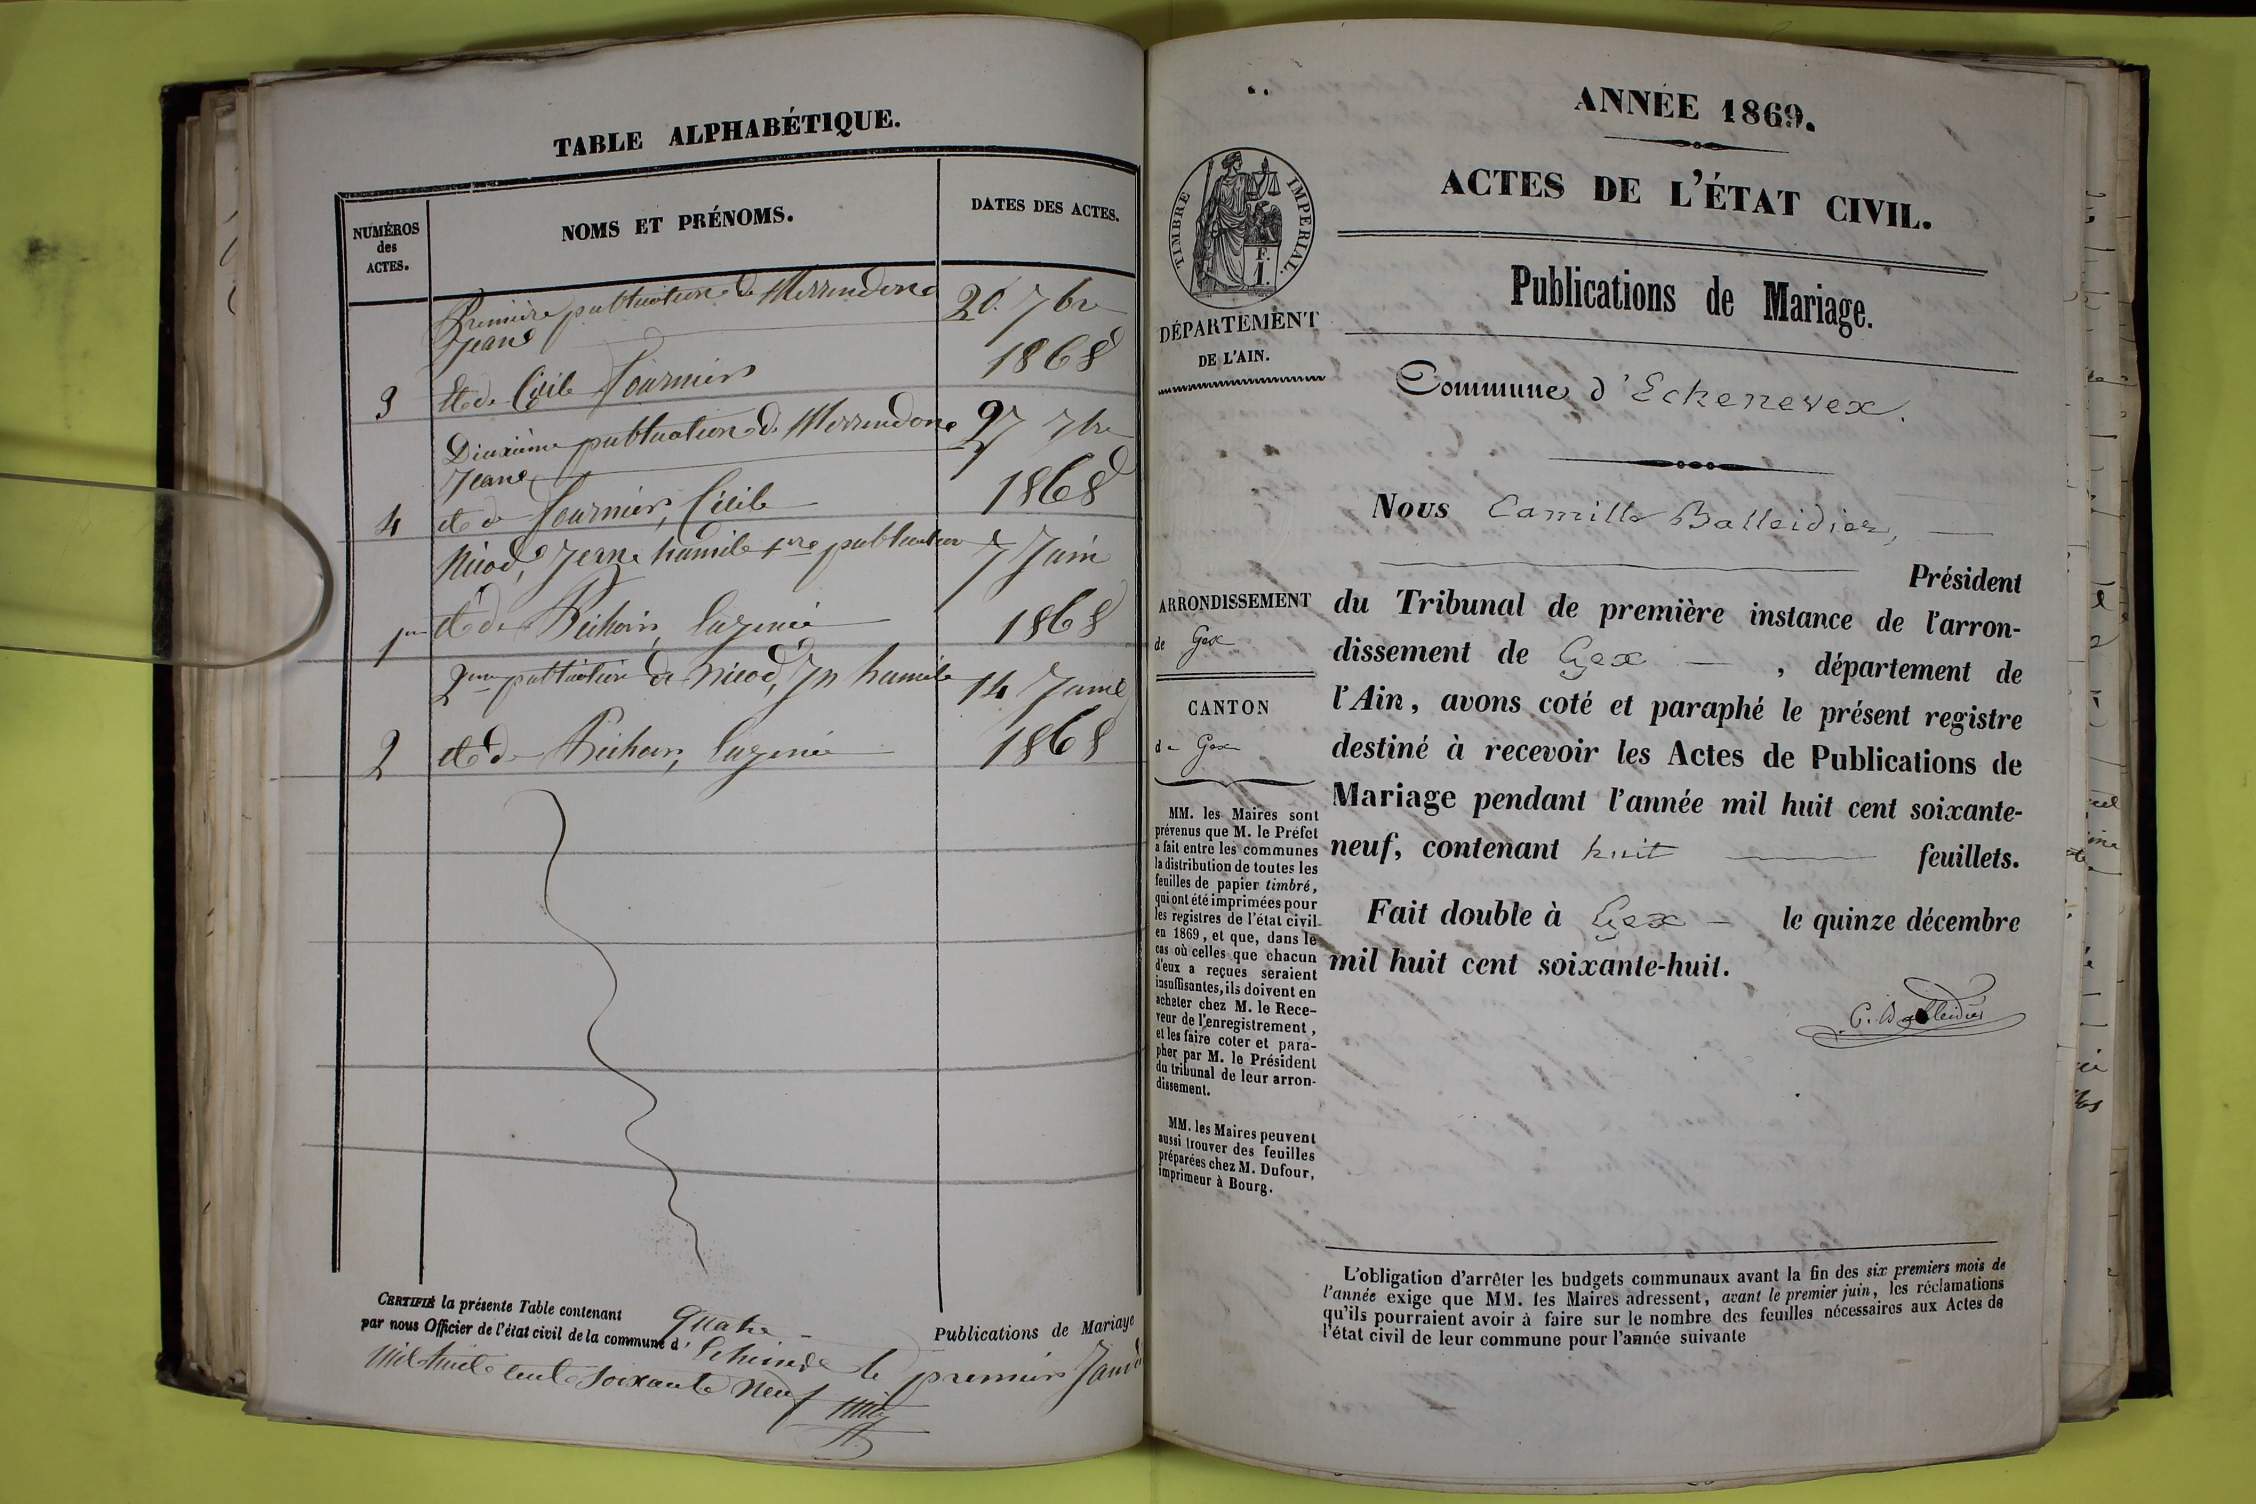 TABLE ALPHABÉTIQUE.
NUMÉROS
des
ACTES.
NOMS ET PRÉNOMS.
DATES DES ACTES.
Première publication de
Jean
20 7bre
3
et de Cécile Fournier
1868
Deuxième publication de
Jean
27 7bre
4
et de Fournier, Cécile
1868
Nicod, Jean 1re publication
7 Juin
1
et de
1868
2me publication de Nicod, Jn
14 Juin
2
et de
1868
CERTIFIÉ la présente Table contenant quatre Publications de Mariage
par nous Officier de l'état civil de la commune d' le premier Janv
mil huit cent soixante neuf
ANNÉE 1869.
ACTES DE L'ÉTAT CIVIL.
Publications de Mariage.
TIMBRE IMPERIAL.
F.
1.
DÉPARTEMENT
DE L'AIN.
Commune d'Echenevex.
Nous Camille Balleidier,
Président
ARRONDISSEMENT
de Gex
CANTON
de Gex
du Tribunal de première instance de l'arron-
dissement de Gex, département de
l'Ain, avons coté et paraphé le présent registre
destiné à recevoir les Actes de Publications de
Mariage pendant l'année mil huit cent soixante-
neuf, contenant huit feuillets.
Fait double à Gex le quinze décembre
mil huit cent soixante-huit.
C. Balleidier
MM. les Maires sont
prévenus que M. le Préfet
a fait entre les communes
la distribution de toutes les
feuilles de papier timbré,
qui ont été imprimées pour
les registres de l'état civil
en 1869, et que, dans le
cas où celles que chacun
d'eux a reçues seraient
insuffisantes, ils doivent en
acheter chez M. le Rece-
veur de l'enregistrement,
et les faire coter et para-
pher par M. le Président
du tribunal de leur arron-
dissement.
MM. les Maires peuvent
aussi trouver des feuilles
préparées chez M. Dufour,
imprimeur à Bourg.
L'obligation d'arrêter les budgets communaux avant la fin des six premiers mois de
l'année exige que MM. les Maires adressent, avant le premier juin, les réclamations
qu'ils pourraient avoir à faire sur le nombre des feuilles nécessaires aux Actes de
l'état civil de leur commune pour l'année suivante